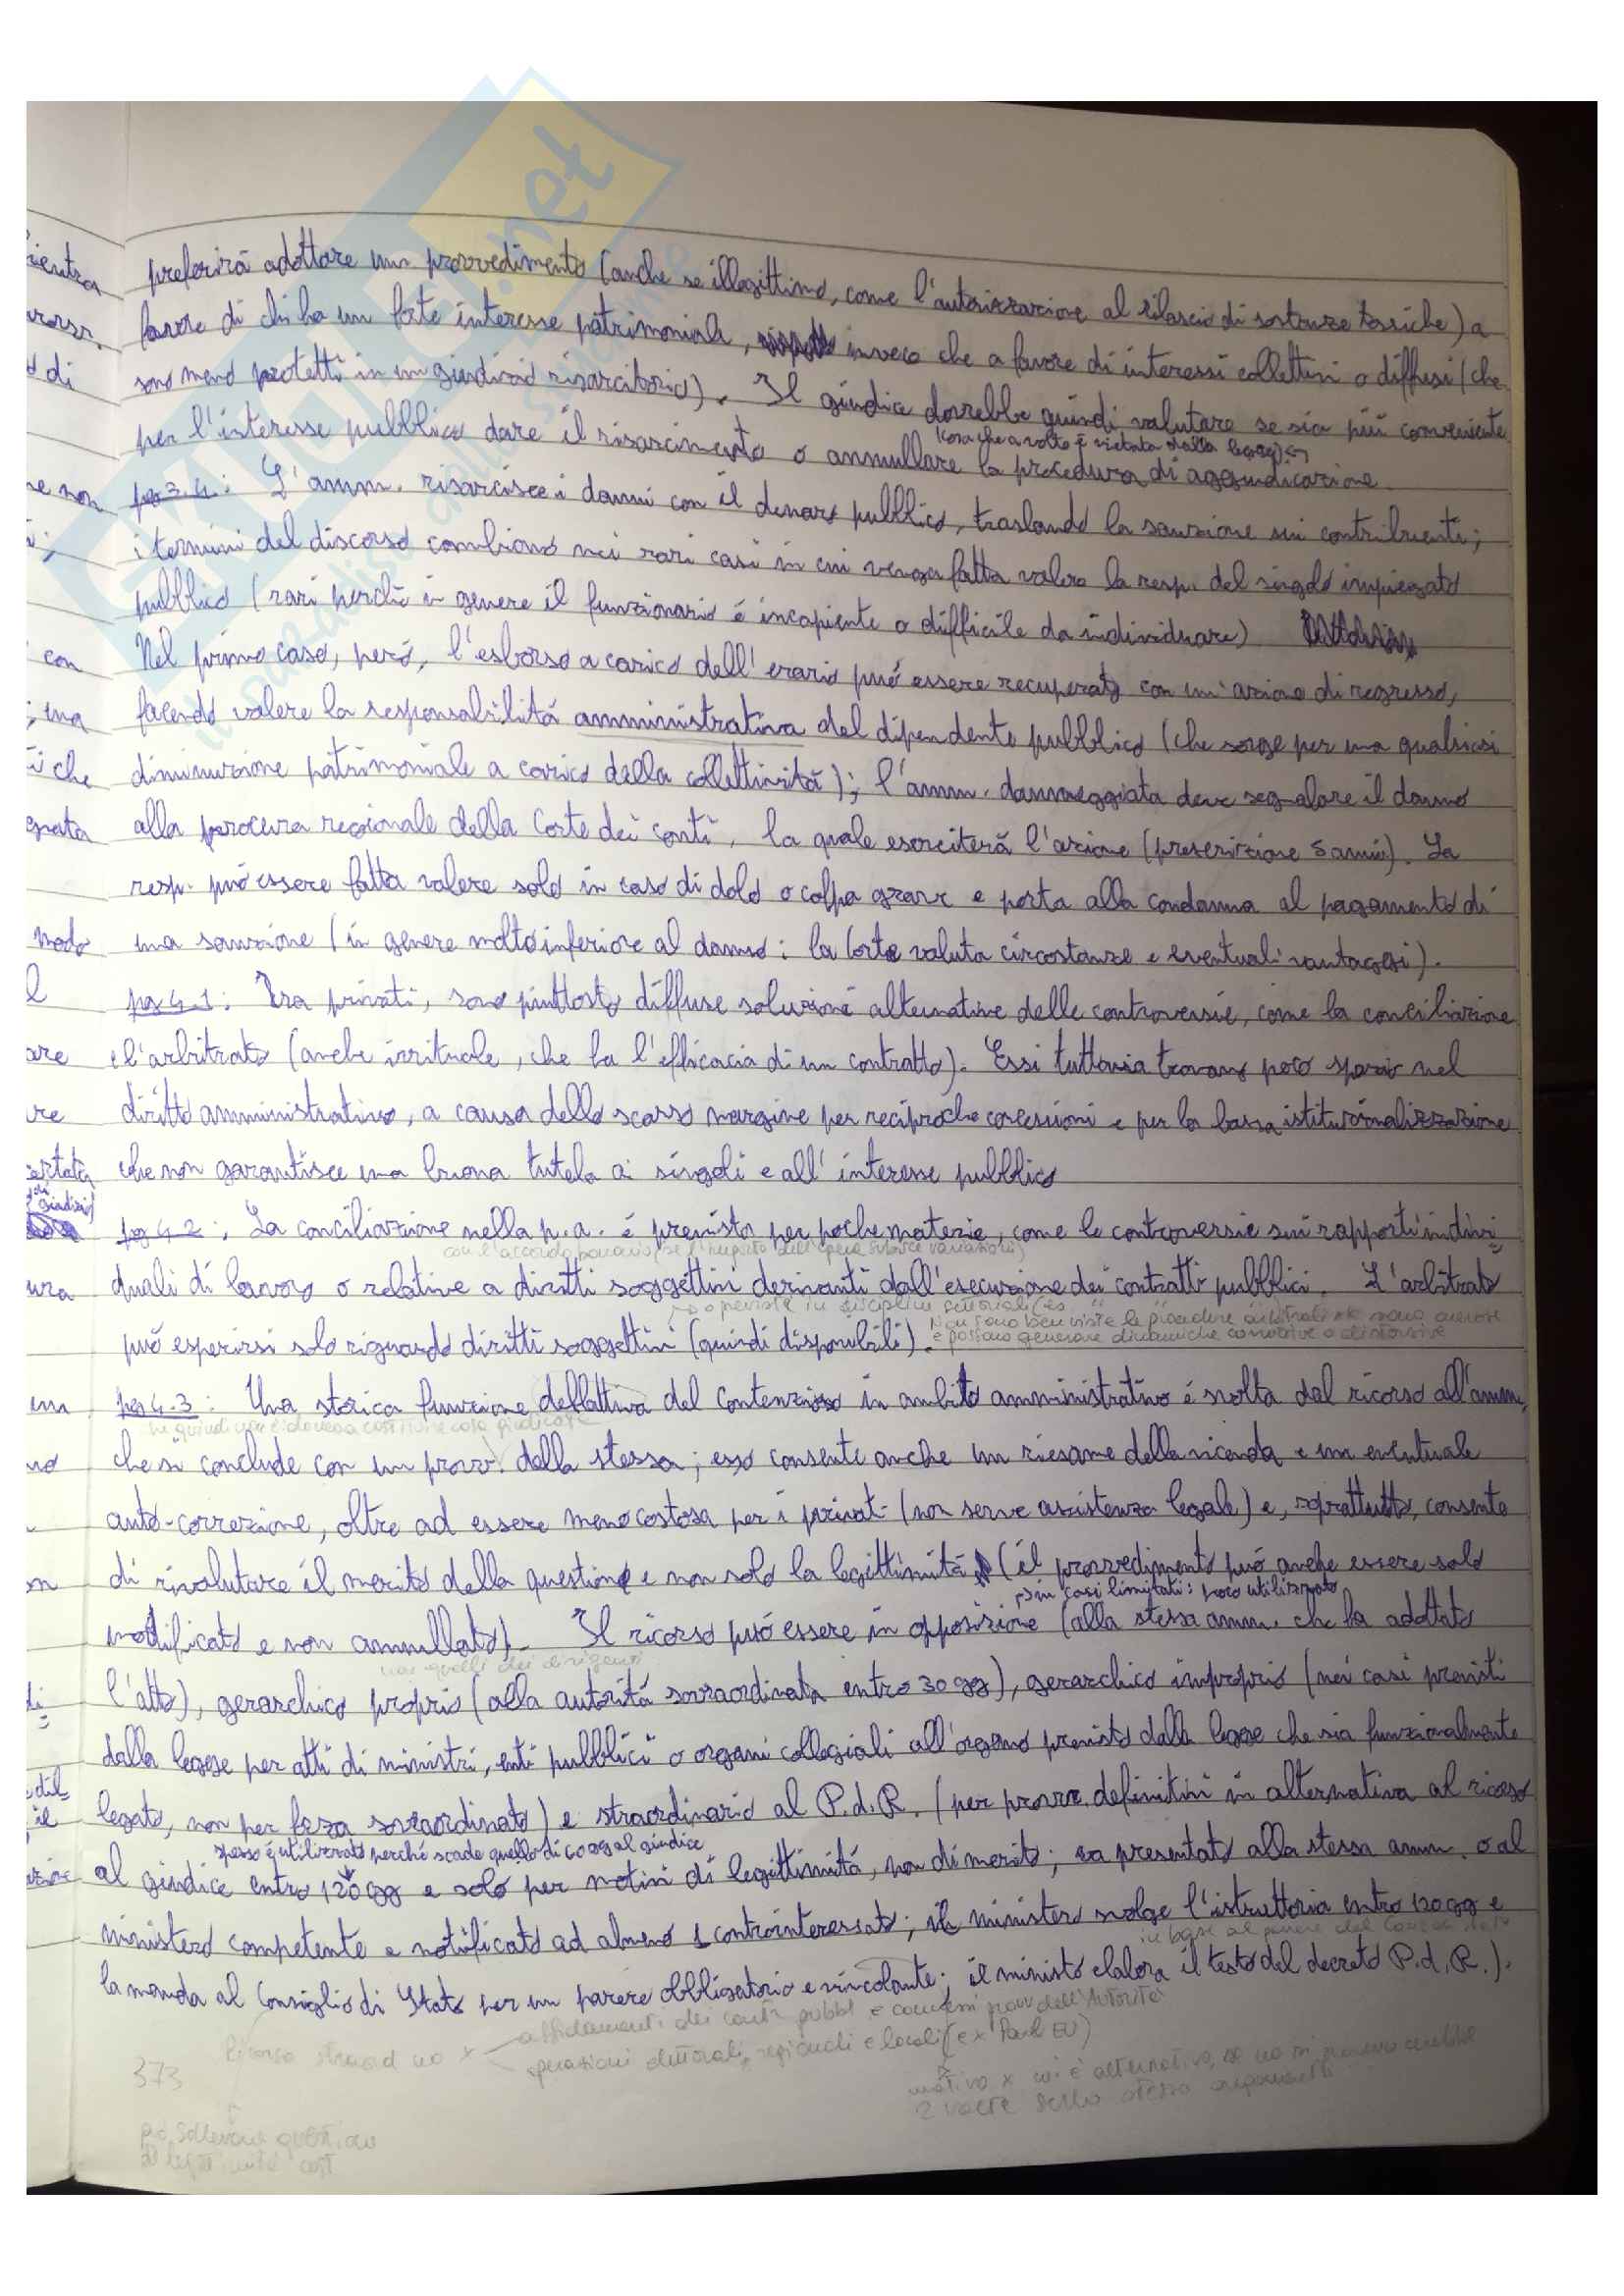 preferirà adottare un provvedimento (anche se illegittimo, come l'autorizzazione al rilascio di sostanze tossiche) a
favore di chi ha un forte interesse patrimoniale, invece che a favore di interessi collettivi o diffusi (che
sono meno protetti in un giudizio risarcitorio). Il giudice dovrebbe quindi valutare se sia più conveniente
per l'interesse pubblico dare il risarcimento o annullare la procedura di aggiudicazione.
(cosa che a volte è vietata dalla legge)
pg 3.4: L'amm. risarcisce i danni con il denaro pubblico, traslando la sanzione sui contribuenti;
i termini del discorso cambiano nei rari casi in cui venga fatta valere la resp. del singolo impiegato
pubblico (rari perché in genere il funzionario é incapiente o difficile da individuare)
Nel primo caso, peró, l'esborso a carico dell'erario puó essere recuperato con un'azione di regresso,
facendo valere la responsabilitá amministrativa del dipendente pubblico (che sorge per una qualsiasi
diminuzione patrimoniale a carico della collettivitá); l'amm. danneggiata deve segnalare il danno
alla procura regionale della Corte dei conti, la quale eserciterá l'azione (prescrizione 5 anni). La
resp. puó essere fatta valere solo in caso di dolo o colpa grave e porta alla condanna al pagamento di
una sanzione (in genere molto inferiore al danno: la Corte valuta circostanze e eventuali vantaggi).
pg 4.1: Tra privati, sono piuttosto diffuse soluzioni alternative delle controversie, come la conciliazione
e l'arbitrato (anche irrituale, che ha l'efficacia di un contratto). Essi tuttavia trovano poco spazio nel
diritto amministrativo, a causa dello scarso margine per reciproche concessioni e per la bassa istituzionalizzazione
che non garantisce una buona tutela ai singoli e all'interesse pubblico
pg 4.2: La conciliazione nella p.a. é prevista per poche materie, come le controversie sui rapporti indivi=
duali di lavoro o relative a diritti soggettivi derivanti dall'esecuzione dei contratti pubblici. L'arbitrato
o previste in discipline settoriali (es
Non sono ben viste le procedure arbitrali xk sono onerose
e possono generare dinamiche corruttive o distorsive
puó esperirsi solo riguardo diritti soggettivi (quindi disponibili).
pg 4.3: Una storica funzione deflattiva del contenzioso in ambito amministrativo é svolta dal ricorso all'amm,
che si conclude con un provv. della stessa; esso consente anche un riesame della vicenda e un eventuale
auto-correzione, oltre ad essere meno costosa per i privati (non serve assistenza legale) e, soprattutto, consente
di rivalutare il merito della questione e non solo la legittimitá (il provvedimento puó anche essere solo
in casi limitati: poco utilizzato
modificato e non annullato). Il ricorso puó essere in opposizione (alla stessa amm. che ha adottato
non quelli dei dirigenti
l'atto), gerarchico proprio (alla autoritá sovraordinata entro 30 gg), gerarchico improprio (nei casi previsti
dalla legge per atti di ministri, enti pubblici o organi collegiali all'organo previsto dalla legge che sia funzionalmente
legato, non per forza sovraordinato) e straordinario al P.d.R. (per provv. definitivi in alternativa al ricorso
spesso é utilizzato perché scade quello di 60 gg al giudice
al giudice entro 120 gg e solo per motivi di legittimitá, non di merito; va presentato alla stessa amm. o al
ministero competente e notificato ad almeno 1 controinteressato; il ministero svolge l'istruttoria entro 120 gg e
la manda al Consiglio di Stato per un parere obbligatorio e vincolante; il ministo elabora il testo del decreto P.d.R.).
Ricorso straord no x
affidamenti dei contr pubbl e
operazioni elettorali, regionali e locali (ex Parl EU)
373
2 volte sullo stesso argomento